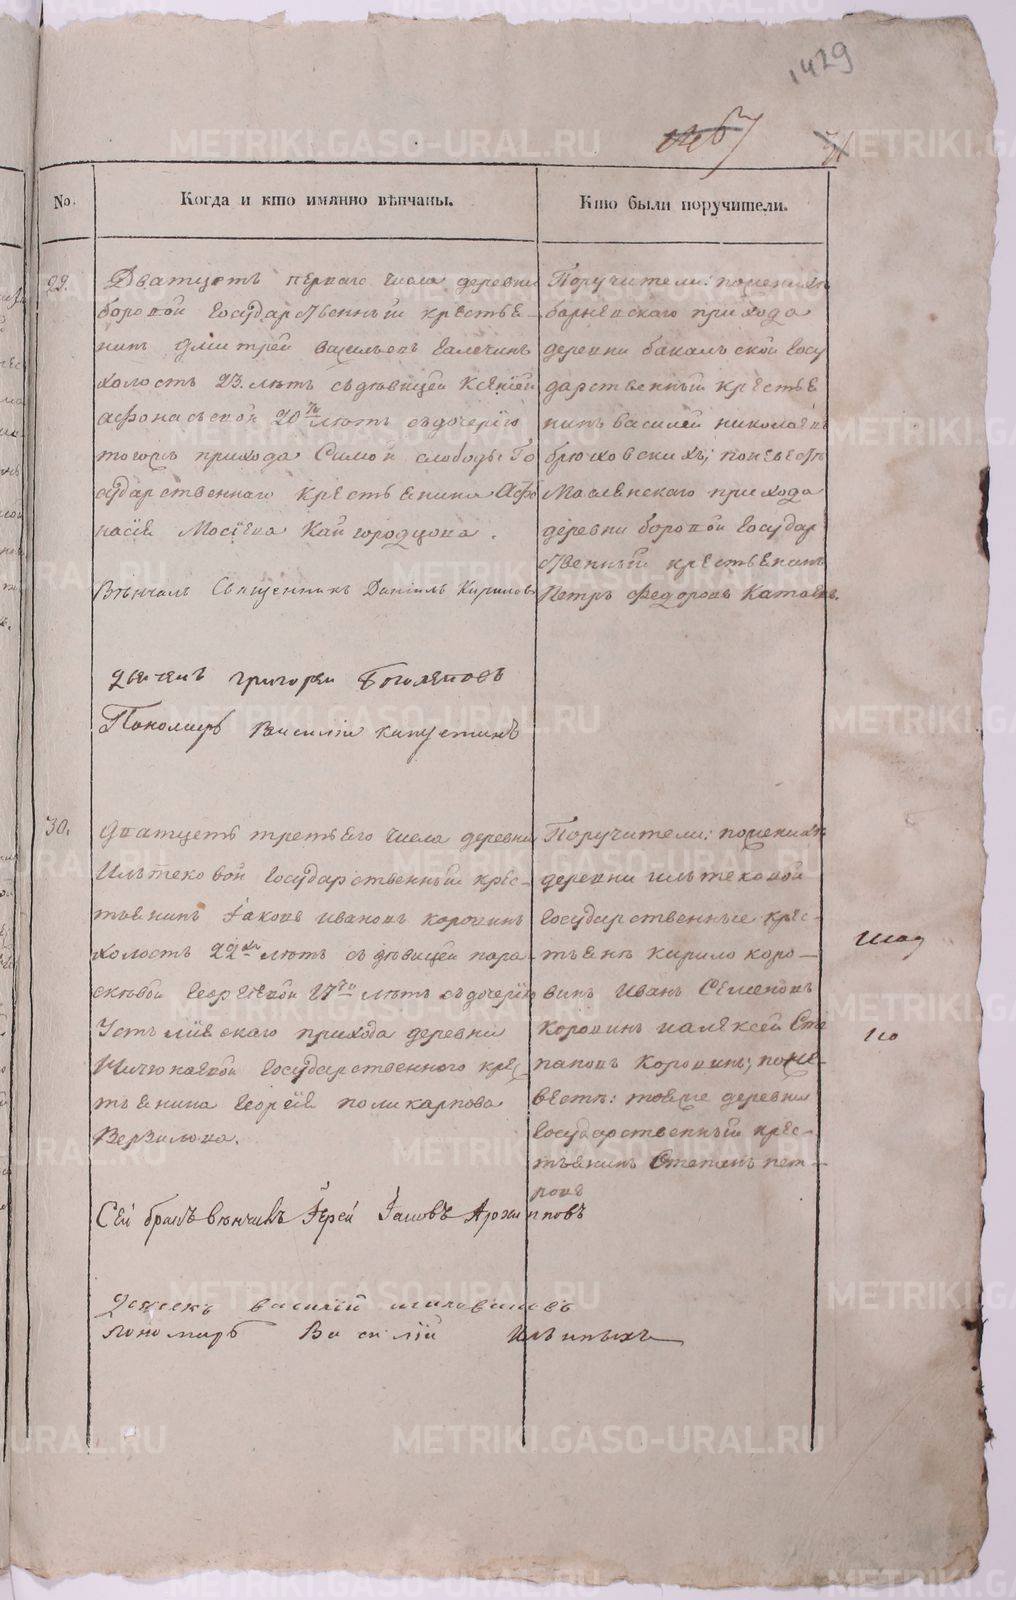 1429
No.
Когда и кто имянно вѣнчаны.
Кто были поручители.
29.
Дватцеть перваго числа деревни
боровой государственный крестья-
нинъ Дмитрей Васильевъ Галечинъ
холостъ 23. лѣтъ съ дѣвицей Ксенiей
Афонасьевой 20ти лѣтъ съ дочерiю
тогожъ прихода слободы Го
сударственнаго крестьянина Афо
насiя Мосiева Кайгородцова.
Вѣнчалъ Священникъ Данiилъ Кириловъ
Дьяконъ григореи Боголеповъ
Пономарь Василiй капустинъ
Поручители: поженихѣ
барневскаго прихода
деревни бакальской госу
дарственный крестья
нинъ василей николаевъ
брюховскихъ; поневестѣ
Маслянскаго прихода
деревни боровой государ
ственный крестьянинъ
Петръ Федоровъ Катаевъ.
30.
Дватцеть третьяго числа деревни
Ильтековой государственный крес-
тьянинъ Iаковъ ивановъ коровинъ
холостъ 22хъ лѣтъ съ дѣвицей пара-
скѣвой Георгiевой 17ти лѣтъ съ дочерiю
Усть мiяскаго прихода деревни
Ничюнаевой государственного крес
тьянина Георгiя поликарпова
Верзилова.
Сей бракъ вѣнчалъ Iерей Iаковъ Архиповъ
Дьячекъ василiй
Пономарь Василiй Ильиныхъ
Поручители: поженихѣ
деревни ильтековой
государственные крес-
тьяня кирило коро-
винъ Иванъ Семеновъ
Коровинъ иалексей Сте
пановъ Коровинъ; поне-
вестѣ: тояже деревни
государственный крес-
тьянинъ Степанъ пет-
ровъ